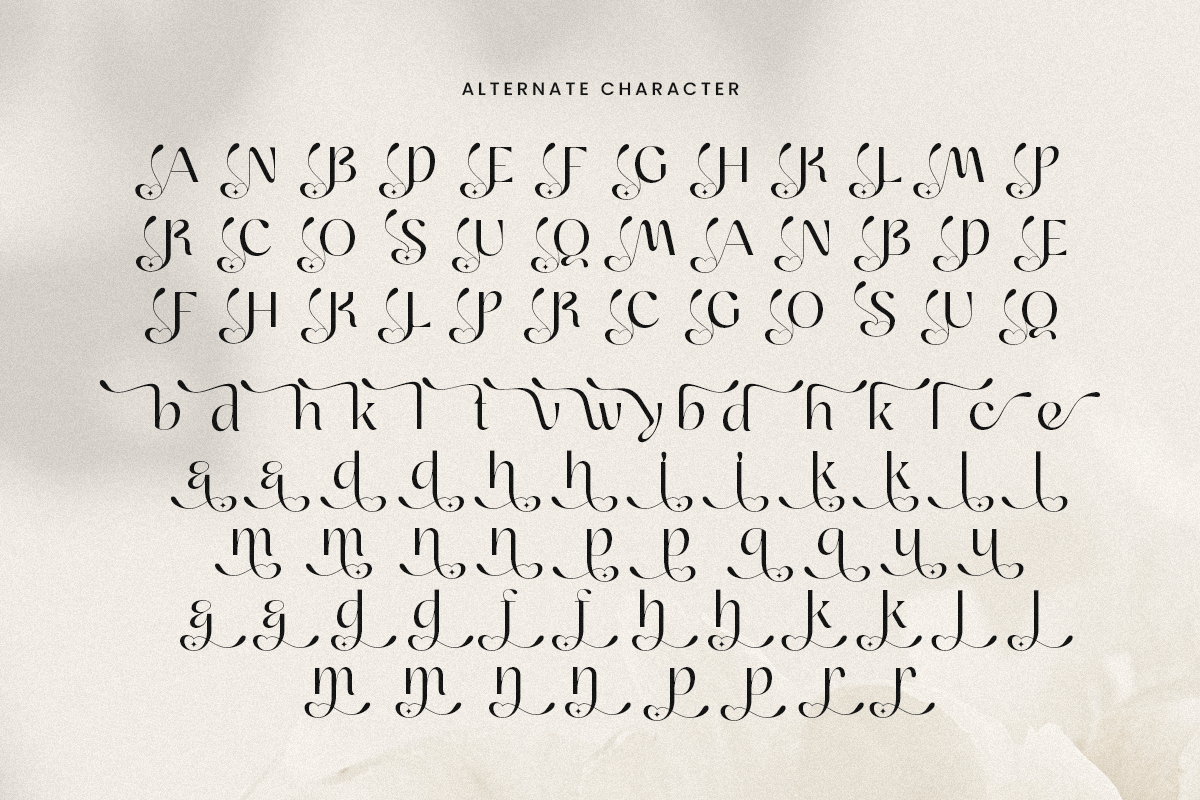 ALTERNATE CHARACTER
A N B D E F G H K L M P
R C O S U Q M A N B D E
F H K L P R C G O S U Q
b d h k l t v w y b d h k l c e
a a d d h h i i k k l l
m m n n p p q q u u
a a d d f f h h k k l l
m m n n p p r r